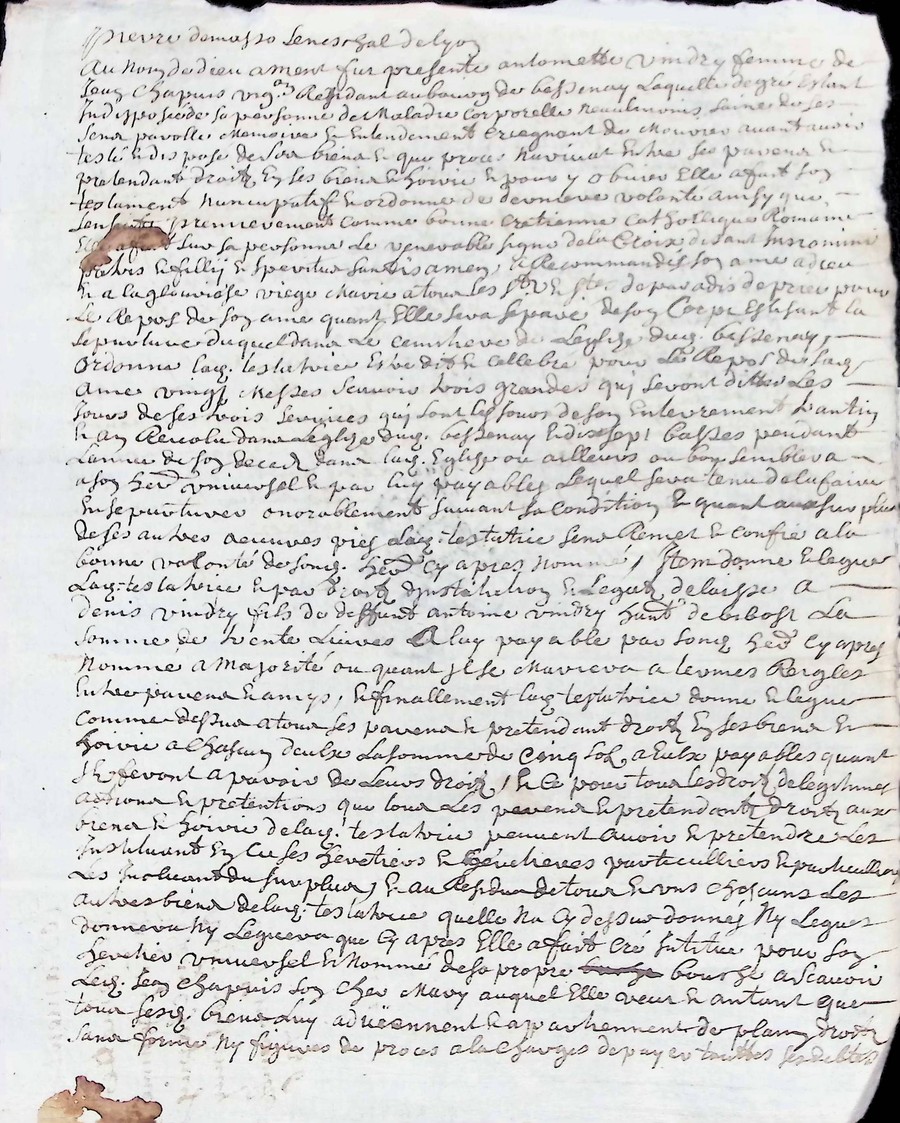 Pierre de masso seneschal de lyon
Au Nom de dieu ament fut presente antoinette vindry femme de
Jean Chapuis vig.on Residant au bourg de bessenay Laquelle de gré Estant
Indisposée de sa personne de Maladie Corporelle neaulmoins saine de ses
sens parolle Memoire & Entendement Creignant de Mourir avant avoir
testé & disposé de ses biens & que proces Navint Entre ses parens &
pretendant droitz En ses biens & hoirie & pour y obvier Elle a fait son
testament Nuncupatif & ordonne de derniere volonté ainsy que
Lensuit premierement comme bonne Cretienne Catholicque Romaine
Elle a fait sur sa personne Le venerable signe de la Croix disant In nomini
patris & fillij & speritus santis amen a Recommandé son ame a dieu
& a la glorieuse viege Marie a tous les sts & stes de paradis de prier pour
Le Repos de son ame quant Elle sera séparé de son Corps Eslisant la
sepulture du quel dans Le cemitiere de Leglize dud. bessenay,
Ordonne lad. testatrice Estre dit & cellebré pour Le Repos de sad.
ame vingt Messes scavoir trois grandes qui seront dittes Les
jours de ses trois services qui sont les jours de son Enterrement quantin
& an Revolu dans Leglize dud. bessenay & dix sept basses pendant
Lannee de son deced dans lad. Eglize ou ailleurs ou bon semblera
a son her. universel & par luy payables Lequel sera tenu de la faire
Ensepulturer onorablement suivant sa condition & quant au surplus
de ses autres oeuvres pies Lad. testatrice sens Remet & confie a la
bonne volonté de sond. her. Cy apres Nommé, Item donne & legue
Lad. testatrice & par droitz dinstitution & Legat delaisse a
denis vindry fils de deffunt antoine vindry hant. de bibost La
somme de trente Livres A luy payable par sond. her. Cy apres
Nomme a Majorité ou quant Il se Mariera a termes Reigles
Entre parens & amys, & finallement lad. testatrice donne & legue
comme dessus a tous ses parens & pretendant droitz En ses biens &
hoirie a Chascun deulx La somme de Cinq solz a Eulx payables quant
Ilz feront aparoir de Leurs droitz, & Ce pour tous les droitz de legitimes
actions & pretentions que tous Les parens & pretendantz droitz aux
biens & hoirie de lad. testatrice peuvent avoir & pretendre Les
Instituant En Ce ses heretiers & heretieres particulliers & particullieres
Les Incluant du surplus, & au Residu de tous & uns Chascuns Les
autres biens de lad. testatrice quelle Na Cy dessus donnés Ny Legues
donnera Ny Leguera que Cy apres Elle a fait Cré Institue pour son
heretier universel & Nommé de sa propre bouche a scavoir
Led. Jean Chapuis son Cher Mary auquel Elle veut & antant que
tous sesd. biens Luy advienment & apartiennent de plains droitz
sans forme Ny figures de proces a la Charges de payer touttes ses debtes